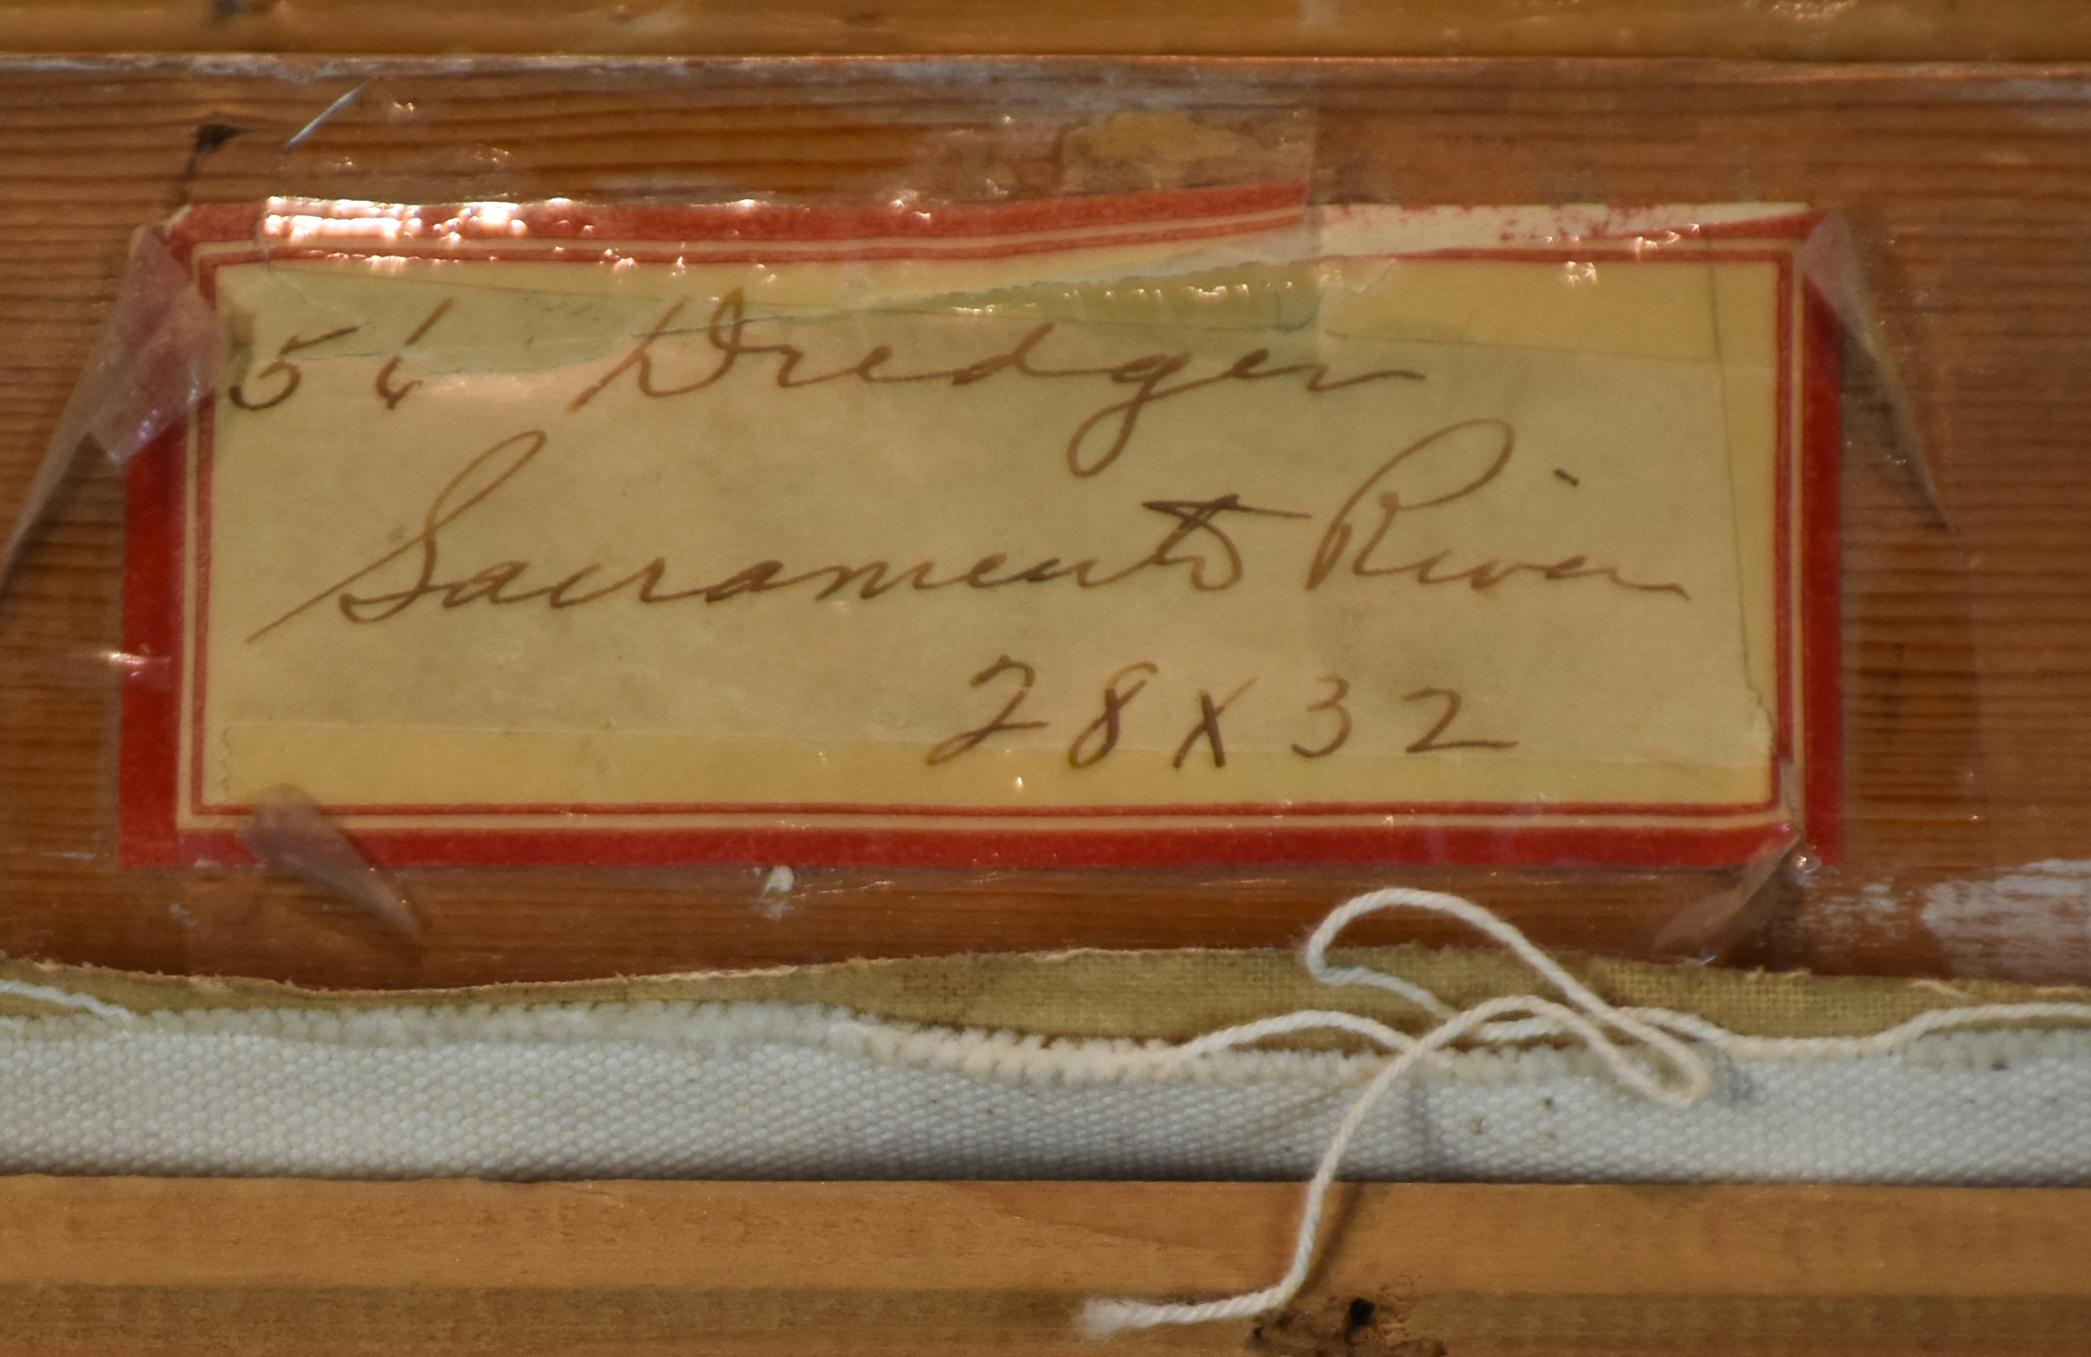 56 Dredger
Sacramento River
28 X 32